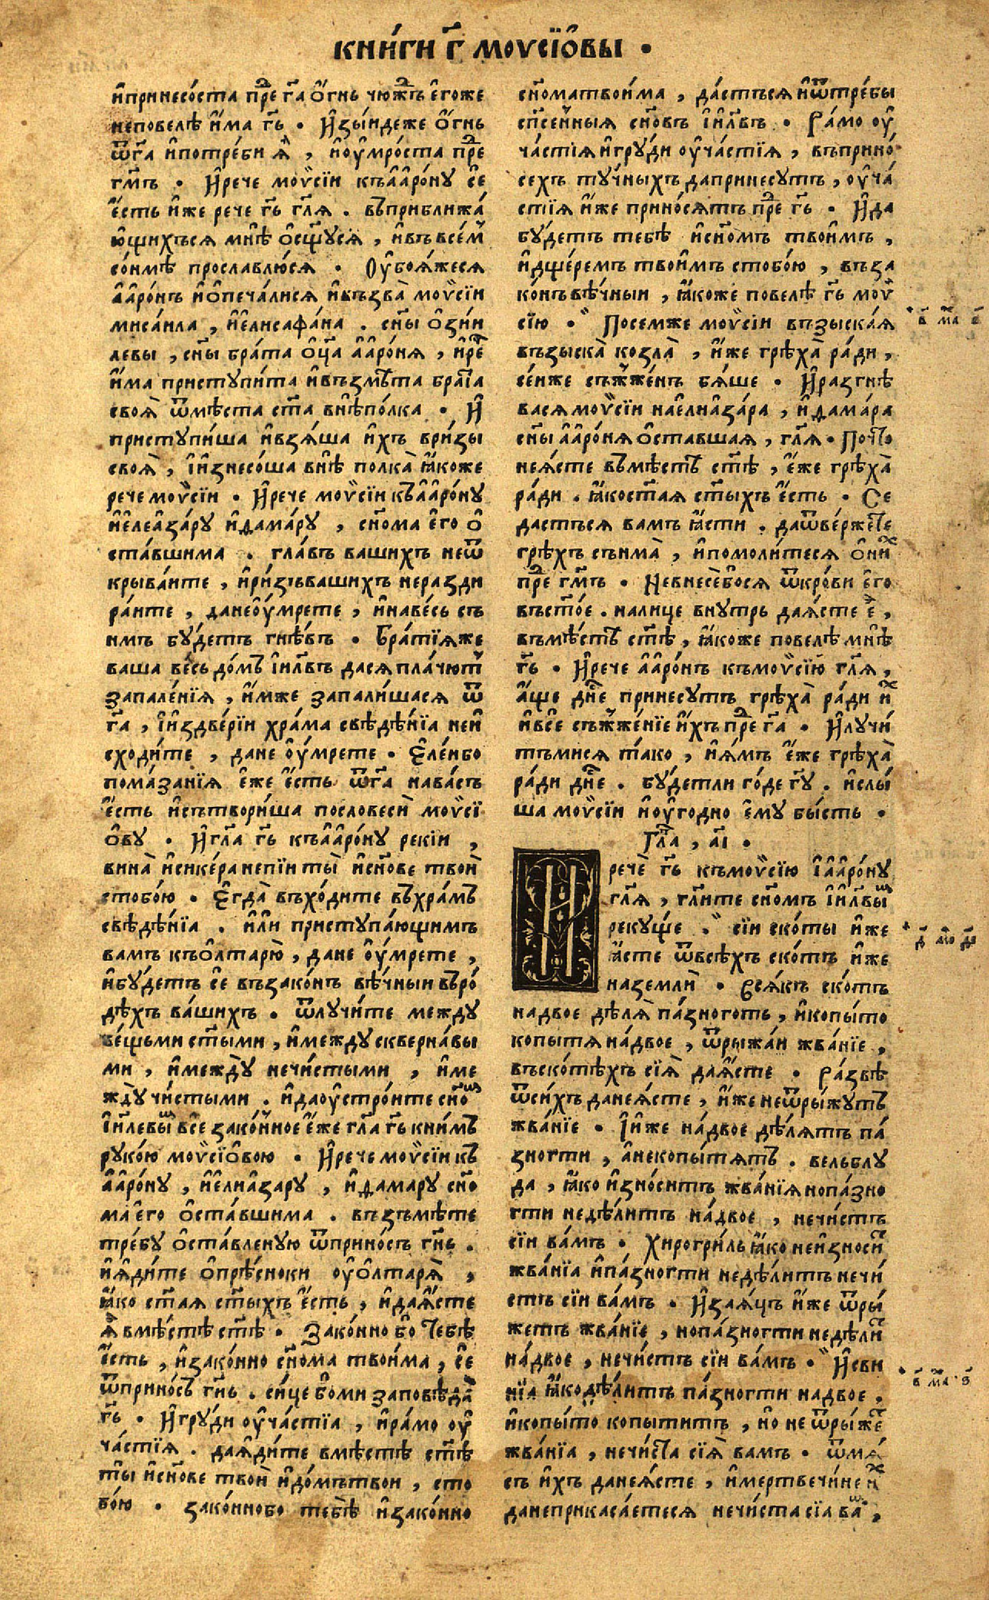 кни́ги г҃ моѵсїѡ̑вы •
и҆принесо́ста пре гⷭ҇а ѻ҆́гнь чю́ждь е҆го́же
неповелѣ̀ и҆́ма гь҃ • И҆зы́иде же ѻ҆́гнь
ѿга҃ и҆потреби ѧ҆̀ , и҆оу҆мро́ста пре
гмъ҃ • И҆рече мочсїи къаа҆ро́ну се
е҆́сть и҆́же рече гь҃ гл҃ѧ . въприближа́
ю҆щихъсѧ мнѣ̀ ѻ҆сщ҃усѧ , и҆въвсе́м
со́нмѣ прославлю́сѧ • Оу҆боѧ́жесѧ
а҆аро́нъ и҆ѻ҆печа́лисѧ и҆възва̀ моѵсїи
мисаила , и҆е҆лисафа́на . сн҃ы ѻ҆зїи
левы , сн҃ы бра́та ѻ҆ц҃а а҆аро́нѧ , и҆ре
и҆́ма приступи́та и҆възмѣ́та бра́тїа
своѧ̀ ѿмѣ́ста ст҃а внѣ̀по́лка • И҆
приступи́ша и҆взѧ́ша и҆́хъ ври́зы
своѧ̀ , і҆и҆знесо́ша внѣ̀ полка̀ ꙗ҆́коже
рече моѵсїи • И҆рече моѵсїи къаа҆ро́ну
и҆е҆леа҆за́ру и҆дама́ру , сн҃ома е҆го ѻ҆
ста́вшима . гла́въ вашихъ неѿ
крыва́ите , и҆ри́зъвашихъ неразди
ра́ите , данеоу҆́мрете , и҆наве́сь съ
имъ бу́детъ гнѣ́въ • Бра́тїѧже
ваша ве́сь до́мъ і҆ил҃въ дасѧ пла́чютъ
запале́нїѧ , и҆́мже запали́шасѧ ѿ
га҃ , і҆и҆здве́рїи хра́ма свѣдѣ́нїа неи
сходи́те , дане оу҆́мрете • Е҆ле́ибо
пома́занїѧ е҆́же е҆́сть ѿга҃ нава́съ
е҆́сть и҆сътвори́ша пословесѝ моѵсї
ѻ҆ву • И҆гл҃а гь҃ къаа҆ро́ну рекїи ,
вина̀ и҆сике́ра непїи ты̀ и҆сн҃ове твоѝ
стобо́ю • Е҆гда̀ въхо́дите въхра́мъ
свѣдѣ́нїа . и҆лѝ приступа́ющимъ
вамъ къѻ҆лтарю̀ , дане оу҆́мрете ,
и҆бу́детъ се възако́нъ вѣ́чныи въро́
дѣхъ ва́шихъ • ѿлучи́те между
ве́щьми ст҃ыми , и҆между скве́рнавы
ми , и҆межд̀у нечи́стыми , и҆ме
жд̀у чи́стыми . и҆даоу҆стро́ите сн҃ѡ
і҆ил҃евы все зако́нное е҆́же гл҃а гь҃ книмъ
руко́ю моѵсїѻ҆вою • И҆рече моѵсїи къ
а҆аро́ну , и҆е҆лиа҆за́ру , и҆дамару сн҃о
ма е҆го ѻ҆ста́вшима . възъмѣ́те
тре́бу ѻ҆ста́вленую ѿприно́съ гн҃ь .
и҆ꙗ҆ди́те ѻ҆прѣ́сноки оуѻ҆лтарѧ̀ ,
ꙗ҆́ко ст҃аѧ ст҃ыхъ е҆́сть , и҆даꙗ҆́сте
ѧ҆̀ вмѣ́стѣ ст҃ѣ • Зако́нно бо тебѣ̀
е҆́сть , и҆зако́нно сн҃ома твои́ма , се
ѿприно́съ гн҃ь . си́це бо ми запо́вѣда
гь҃ • И҆гру́ди оуча́стїа , и҆ра́мо оу
ча́стїѧ . даꙗ҆ди́те вмѣ́стѣ ст҃ѣ
ты̀ и҆сн҃ове твоѝ и҆до́мътвои , сто
бо́ю • зако́ннобо тебѣ̀ и҆зако́нно
сн҃оматвои́ма , да́стъсѧ и҆ѿтре́бы
сп҃се́нныѧ сн҃овъ і҆ил҃въ • Ра́мо оу
ча́стїѧ и҆гру́ди оуча́стїѧ , въприно
сехъ ту́чныхъ дапринесутъ , оуча́
стїѧ и҆́же прино́сѧтъ пре гь҃ • И҆да
бу́детъ тебѣ̀ и҆сн҃омъ твои́мъ ,
и҆дще́ремъ твои́мъ стобо́ю , въза
ко́нъ вѣ́чныи , ꙗ҆́коже повелѣ̀ гь҃ моѵ
сїю • Посемже моѵсїи възыска́ѧ
възыска̀ козла̀ , и҆́же грѣха̀ ра́ди ,
се́иже съжже́нъ бѧ́ше • И҆разгнѣ
васѧ моѵсїи нае҆лиа҆за́ра , и҆дама́ра
сн҃ы а҆аро́нѧ ѻ҆ста́вшаѧ , гл҃ѧ • Почто̀
неꙗ҆сте въмѣ́стѣ ст҃ѣ , е҆́же грѣха̀
ра́ди . ꙗ҆́кост҃аѧ ст҃ыхъ е҆́сть • Се
дастъсѧ вамъ ꙗ҆́сти . даѿве́ржете
грѣ́хъ съима̀ , и҆помоли́тесѧ ѻ҆ни
пре гмъ҃ • Невнесе́босѧ ѿкро́ви е҆го
въст҃ое . налице внутрь даꙗ҆́сте е҆̀ ,
въмѣ́стѣ ст҃ѣ , ꙗ҆́коже повелѣ̀ мнѣ̀
гь҃ • И҆рече а҆аро́нъ къмоѵсїю гл҃ѧ ,
а҆́ще дн҃е принесутъ грѣха̀ ради и
и҆все съжже́нїе и҆́хъ пре га҃ • И҆лучи́
тъмисѧ та́ко , и҆ꙗ҆́мъ е҆́же грѣха̀
ра́ди дн҃е . бу́детли го́де гу҃ . и҆слы́
ша моѵсїи и҆оуго́дно е҆му бы́сть •
Гл҃а , аі҃ •
И҆речѐ гь҃ къмоѵсїю і҆а҆аро́ну
гл҃ѧ , гл҃и́те сн҃омъ і҆ил҃вы
рекуще . сїи ско́ты и҆́же
ꙗ҆́сте ѿвсѣ́хъ ско́тъ и҆́же
наземлѝ • Всѧ́къ ско́тъ
на́двое дѣ́лѧ па́зногтъ , и҆копы́то
копы́тѧ на́двое , ѿрыжа́и жва́нїе ,
въско́тѣхъ сїѧ̀ даꙗ҆́сте • Ра́звѣ
ѿси́хъ данеꙗ҆́сте , и҆́же неѿры́жутъ
жва́нїе • І҆и҆же на́двое дѣ́лѧтъ па́
зногти , а҆некопы́тѧтъ . вельблу
да , ꙗ҆́ко и҆зно́ситъ жва́нїѧ нопа́зно
гти недѣ́литъ на́двое , нечи́стъ
сїи ва́мъ • Хирогри́ль ꙗ҆́ко неи҆зноси
жва́нїа и҆па́зногти недѣ́литъ нечи́
стъ сїи ва́мъ • И҆за́ѧцъ и҆́же ѿры́
жетъ жва́нїе , нопа́зногти недѣ́ли
на́двое , нечи́стъ сїи ва́мъ • И҆сви
нїа ꙗ҆́кодѣ́литъ па́зногти на́двое ,
и҆копы́то копы́титъ , но не ѿры́же
жва́нїа , нечи́ста сїѧ̀ вамъ • ѿмѧ́
съ и҆́хъ данеꙗ҆́сте , и҆мертвечи́не и
данеприкаса́етесѧ нечи́ста сїа ва ,
в҃ ма в҃
д҃
в҃ ма ѕ҃